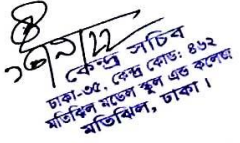 কেন্দ্র সচিব
ঢাকা-৩৫, কেন্দ্র কোড: ৪৬২
মতিঝিল মডেল স্কুল এন্ড কলেজ
মতিঝিল, ঢাকা।